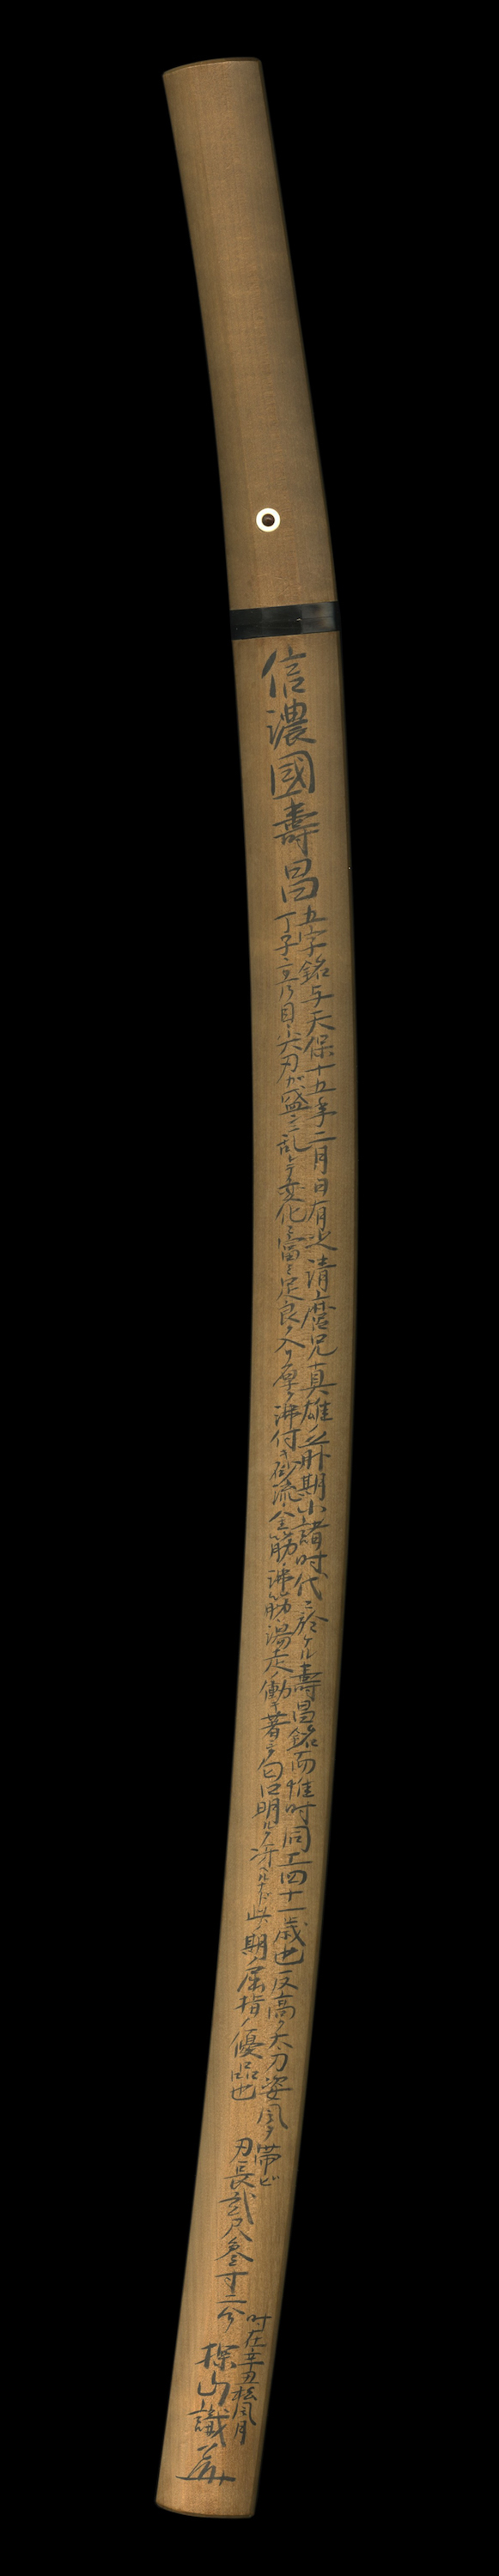 信濃國壽昌
五字銘与天保十五年二月日有之清麿兄真雄ノ前期小諸時代ニ於ケル壽昌銘而惟時同工四十一歳也反高ク太刀姿風ヲ帯ビ
丁子ニ互乃目ト尖刃ガ盛ンニ乱レテ変化ニ富ミ足良ク入リ厚ク沸付キ砂流金筋沸筋湯走ノ働キ著シク匂口明ルク冴ヘルナド此ノ期ノ屈指ノ優品也
刃長貳尺参寸二分
時在辛丑松風月
探山識